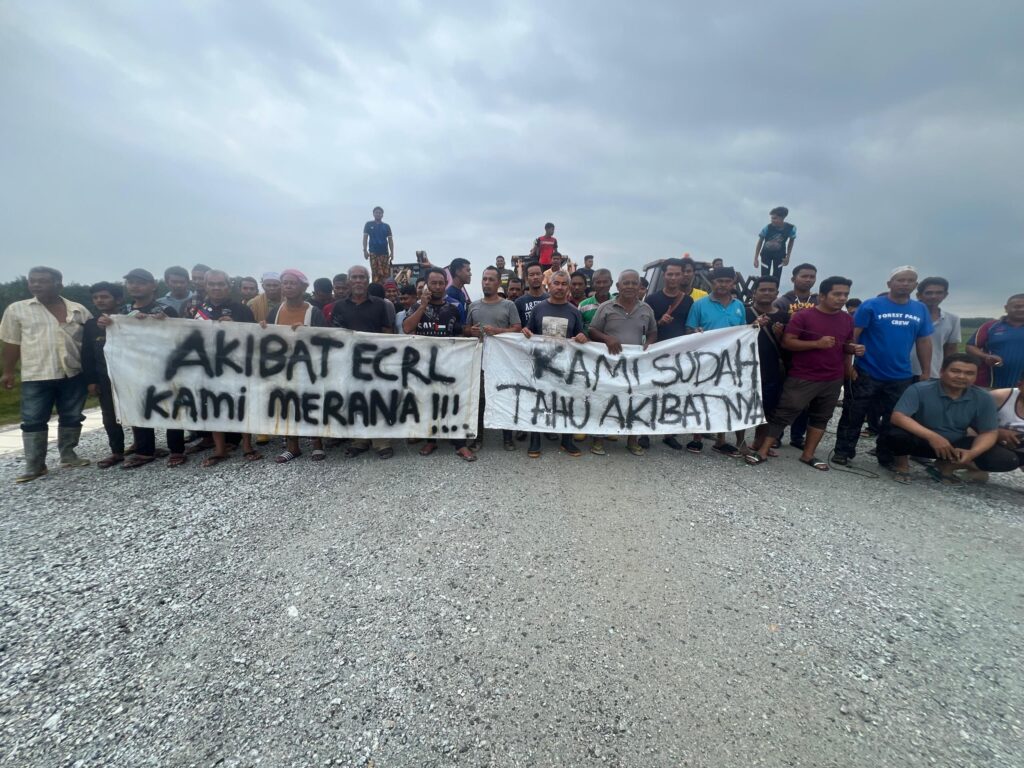 AKIBAT ECRL
KAMI MERANA!!!
KAMI SUDAH
TAHU AKIBATNYA
FOREST PARK
CREW